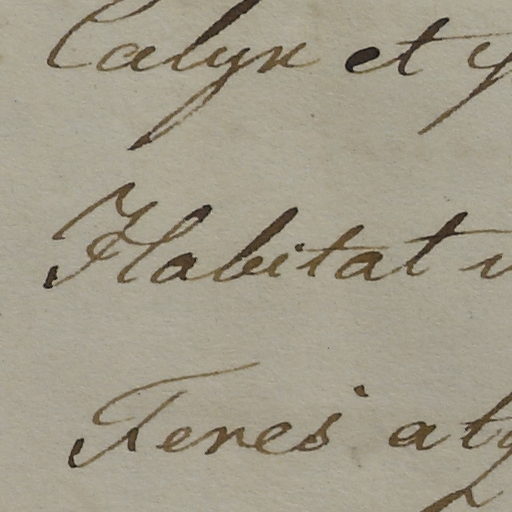 Calyx et
Habitat
Teres